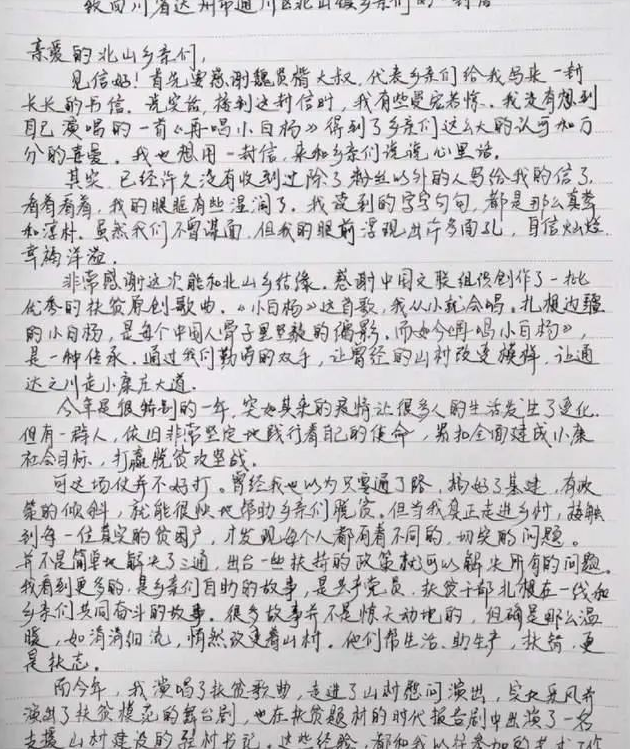 致四川省达州市通川区北山镇乡亲们的一封信
亲爱的北山乡亲们，
见信好！首先要感谢魏贤楷大叔，代表乡亲们给我写来一封
长长的书信。说实话，接到这封信时，我有些受宠若惊。我没有想到
自己演唱的一首《再唱小白杨》得到了乡亲们这么大的认可和万
分的喜爱。我也想用一封信，来和乡亲们说说心里话。
其实，已经许久没有收到过除了粉丝以外的人写给我的信了，
看着看着，我的眼眶有些湿润了。我读到的字字句句，都是那么真挚
和淳朴。虽然我们不曾谋面，但我的眼前浮现出许多面孔，自信灿烂，
幸福洋溢。
非常感谢这次能和北山乡结缘。感谢中国文联组织创作了一批
优秀的扶贫原创歌曲。《小白杨》这首歌，我从小就会唱。扎根边疆
的小白杨，是每个中国人骨子里坚毅的倒影。而如今《再唱小白杨》，
是一种传承。通过我们勤劳的双手，让曾经的山村改变模样，让通
达之川走小康庄大道。
今年是很特别的一年，突如其来的疫情让很多人的生活发生了变化，
但有一群人，依旧非常坚定地践行着自己的使命，紧扣全面建成小康
社会目标，打赢脱贫攻坚战。
可这场仗并不好打。曾经我也以为只要通了路，搞好了基建，有政
策的倾斜，就能很快地帮助乡亲们脱贫。但当我真正走进乡村，接触
到每一位真实的贫困户，才发现每个人都有着不同的，切实的问题。
并不是简单地解决了三通，出台一些扶持的政策就可以解决所有的问题。
我看到更多的，是乡亲们自助的故事，是共产党员、扶贫干部扎根在一线和
乡亲们共同奋斗的故事。很多故事并不是惊天动地的，但确是那么温
暖，如涓涓细流，悄然改变着山村。他们帮生活、助生产，扶智，更
是扶志。
而今年，我演唱了扶贫歌曲，走进了山村慰问演出，实地采风并
演出了扶贫模范的舞台剧，也在扶贫题材的时代报告剧中出演了一名
支援山村建设的驻村书记。这些经验，都和我以往参加的艺术工作